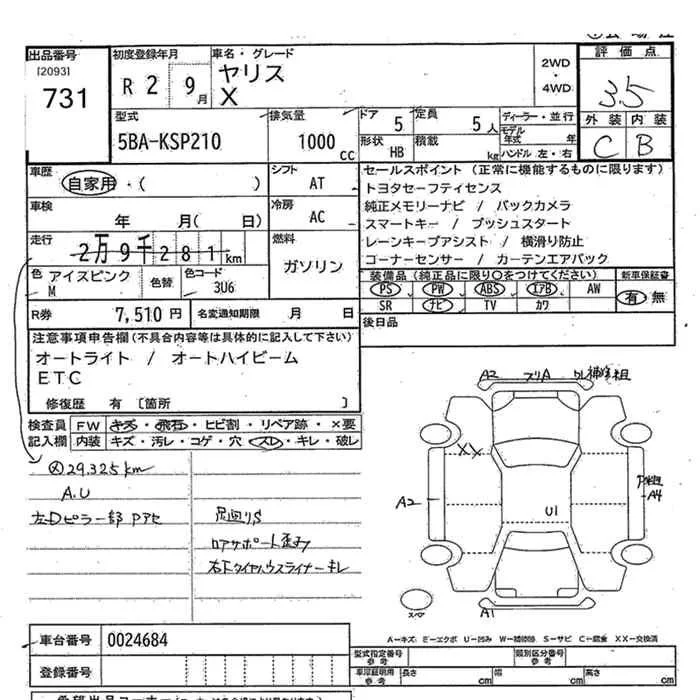 出品番号
[2093]
731
初度登録年月
R 2 9月
車名・グレード
ヤリス
X
2WD
・
4WD
評価点
3.5
外装 内装
C B
型式
5BA-KSP210
排気量
1000 cc
ドア 5
定員 5人
形状 HB
積載 kg
ディーラー・並行
モデル年式 年
ハンドル 左・右
車歴
自家用・( )
シフト
AT
車検
年 月( 日)
冷房
AC
走行
2万9千281km
燃料
ガソリン
色 アイスピンク
M
色替
色コード
3U6
R券 7,510円
名変通知期限 月 日
セールスポイント(正常に機能するものに限ります)
トヨタセーフティセンス
純正メモリーナビ / バックカメラ
スマートキー / プッシュスタート
レーンキープアシスト / 横滑り防止
コーナーセンサー / カーテンエアバック
装備品(純正品に限り○をつけてください)
新車保証書
PS PW ABS エアB AW
SR ナビ TV カワ
有 無
後日品
注意事項申告欄(不具合内容等は具体的に記入して下さい)
オートライト / オートハイビーム
ETC
修復歴 有 [箇所 ]
検査員記入欄
FW キズ・飛石・ヒビ割・リペア跡・×要
内装 キズ・汚レ・コゲ・穴・スレ・キレ・破レ
29.325km
A.U
左Dピラー部 Pアセ
足廻りS
ロアサポート歪み
右下タイヤハウスライナーキレ
A2 スリA
XX
A2
U1
A4
スペア
A1
A-キズ E-エクボ U-凹み W-補修跡 S-サビ C-腐食 XX-交換済
車台番号 0024684
登録番号
型式指定番号
参考
類別区分番号
参考
車庫証明用
参考
長さ cm
幅 cm
高さ cm